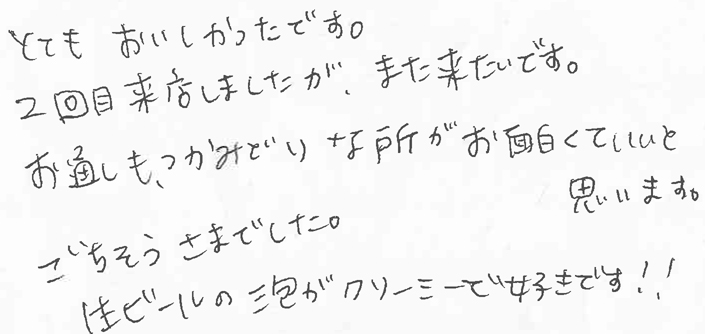 とても おいしかったです。
2回目来店しましたが、また来たいです。
お通しも、つかみどりな所がお面白くていいと
思いいます。
ごちそうさまでした。
生ビールの泡がクリーミーで好きです!!